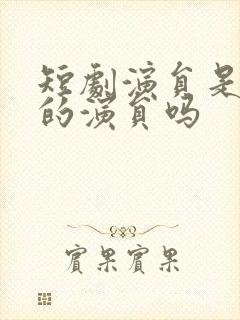 短劇演員是
的演員嗎
賓果賓果